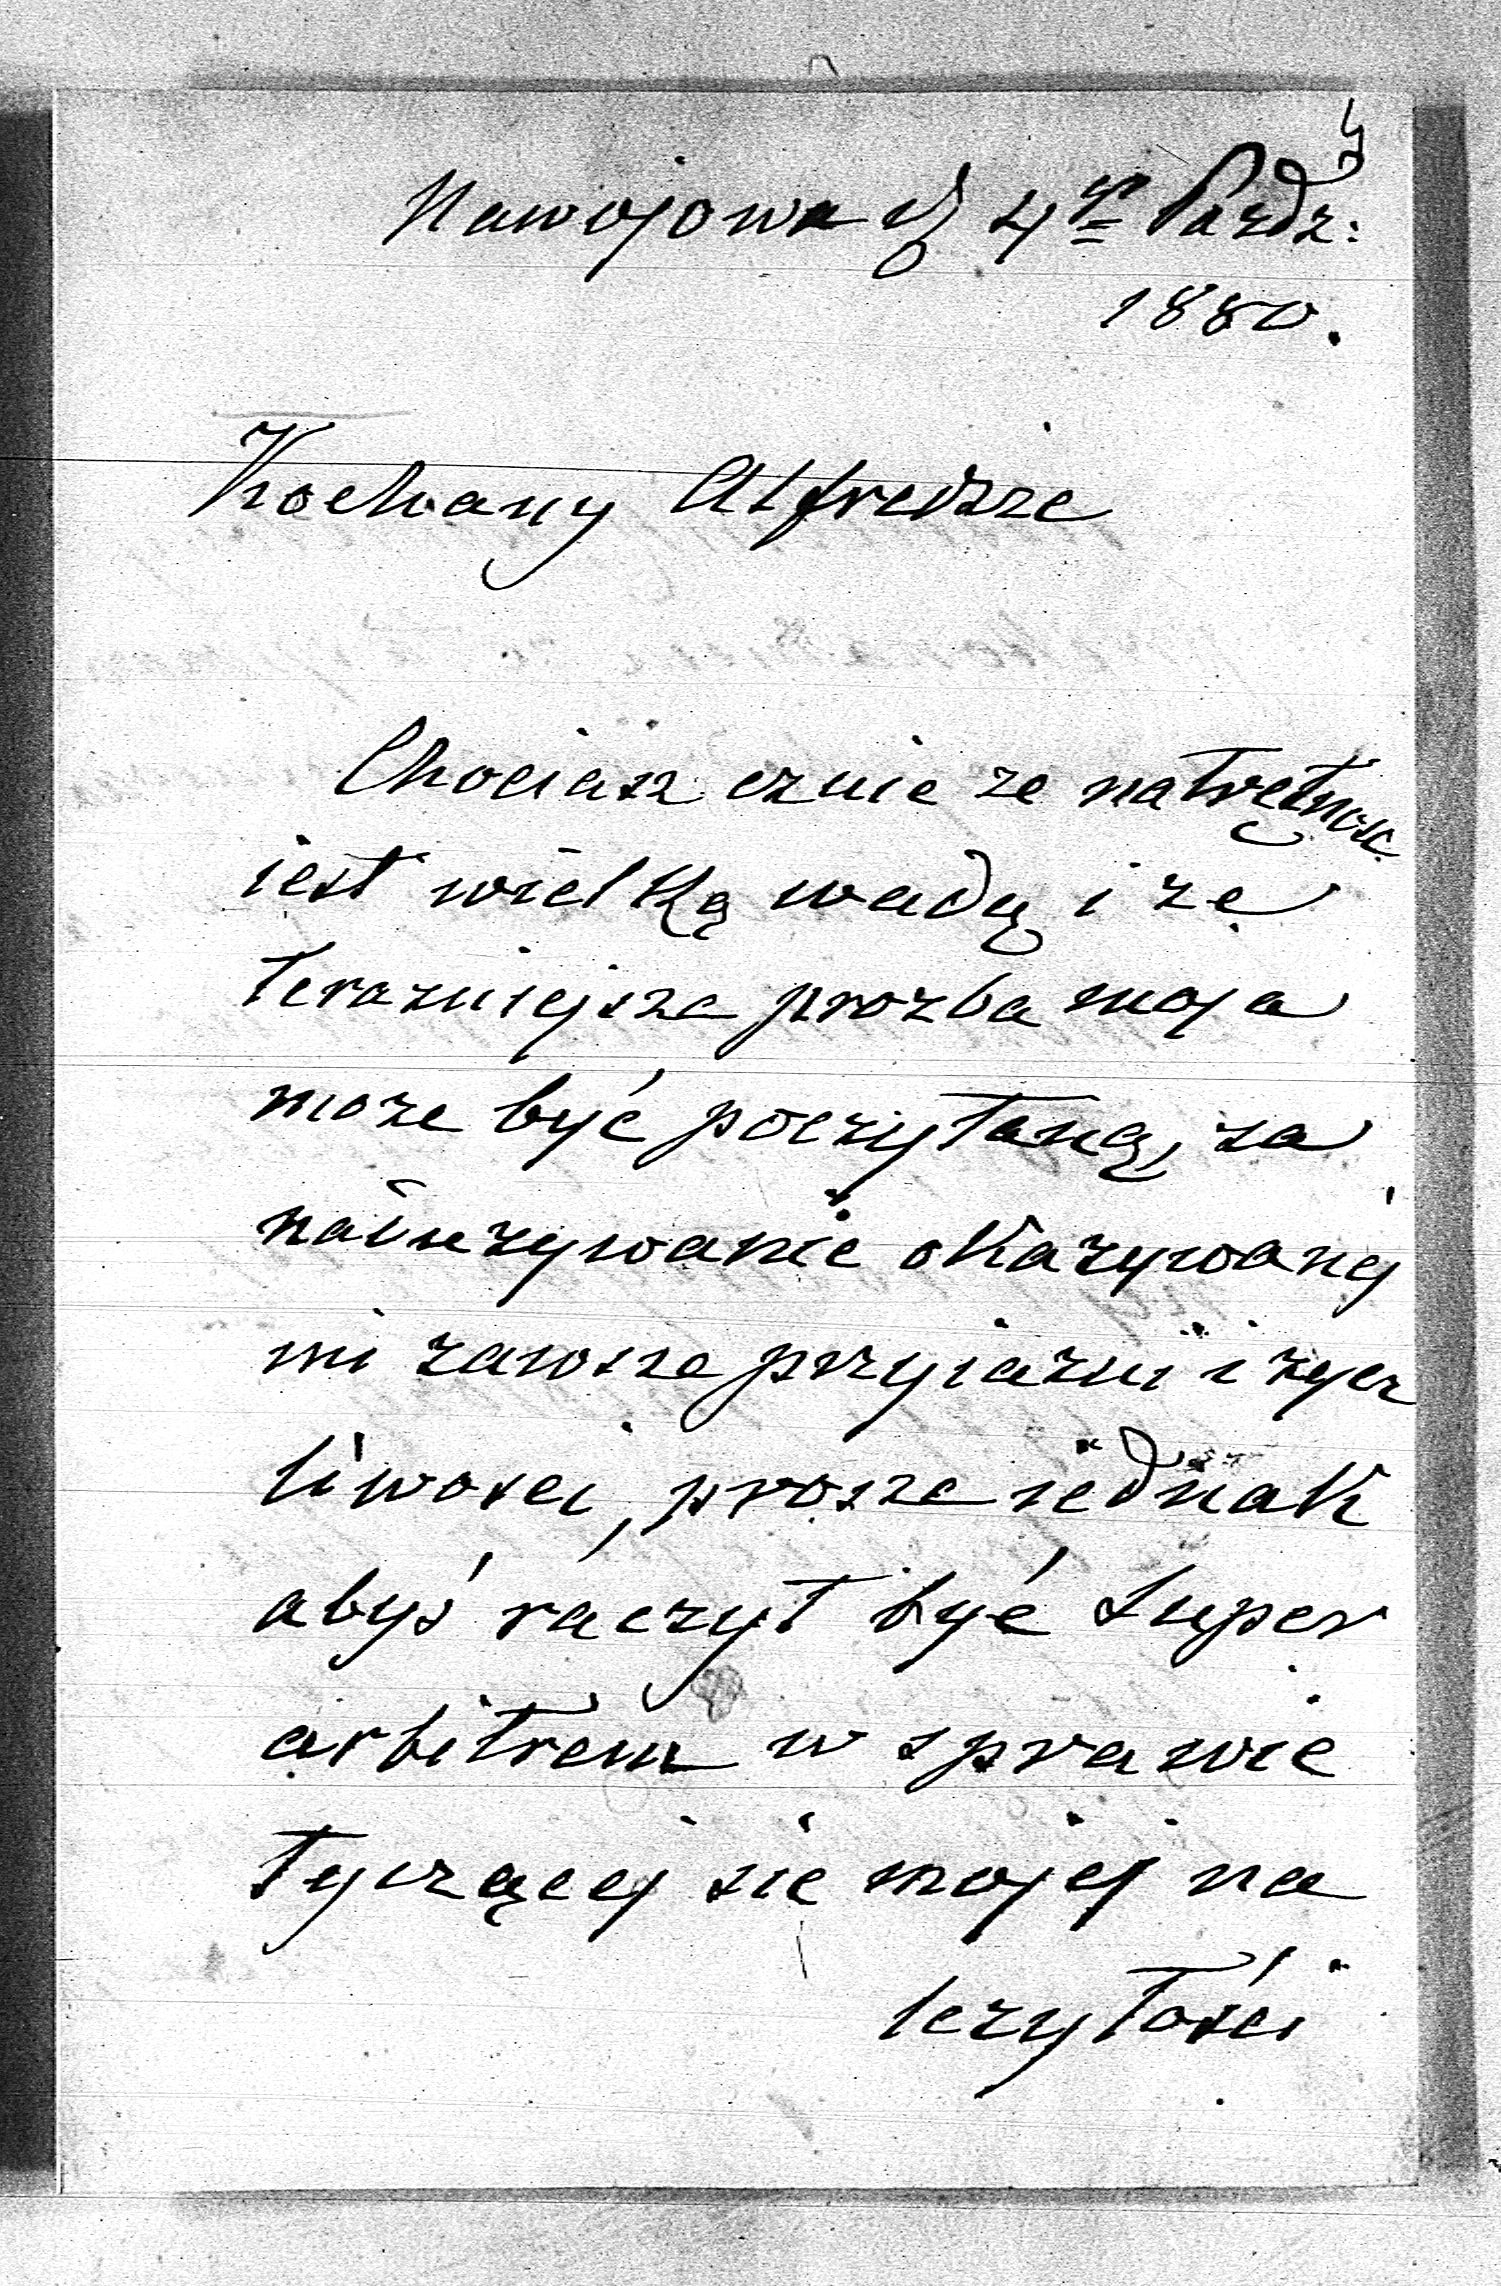 Nawojowa d 4go Pazdz:
1880.
Kochany Alfredzie
Chociasz czuie ze natrętnosc
iest wielką wadą i ze
terazniejsza prozba moja
moze być poczytaną, za
naduzywanie okazywanej
mi zawsze przyiazni i zycz
liwosci, prosze iednak
abyś raczył być Super
arbitrem w sprawie
tyczącej się mojej na
lezytości